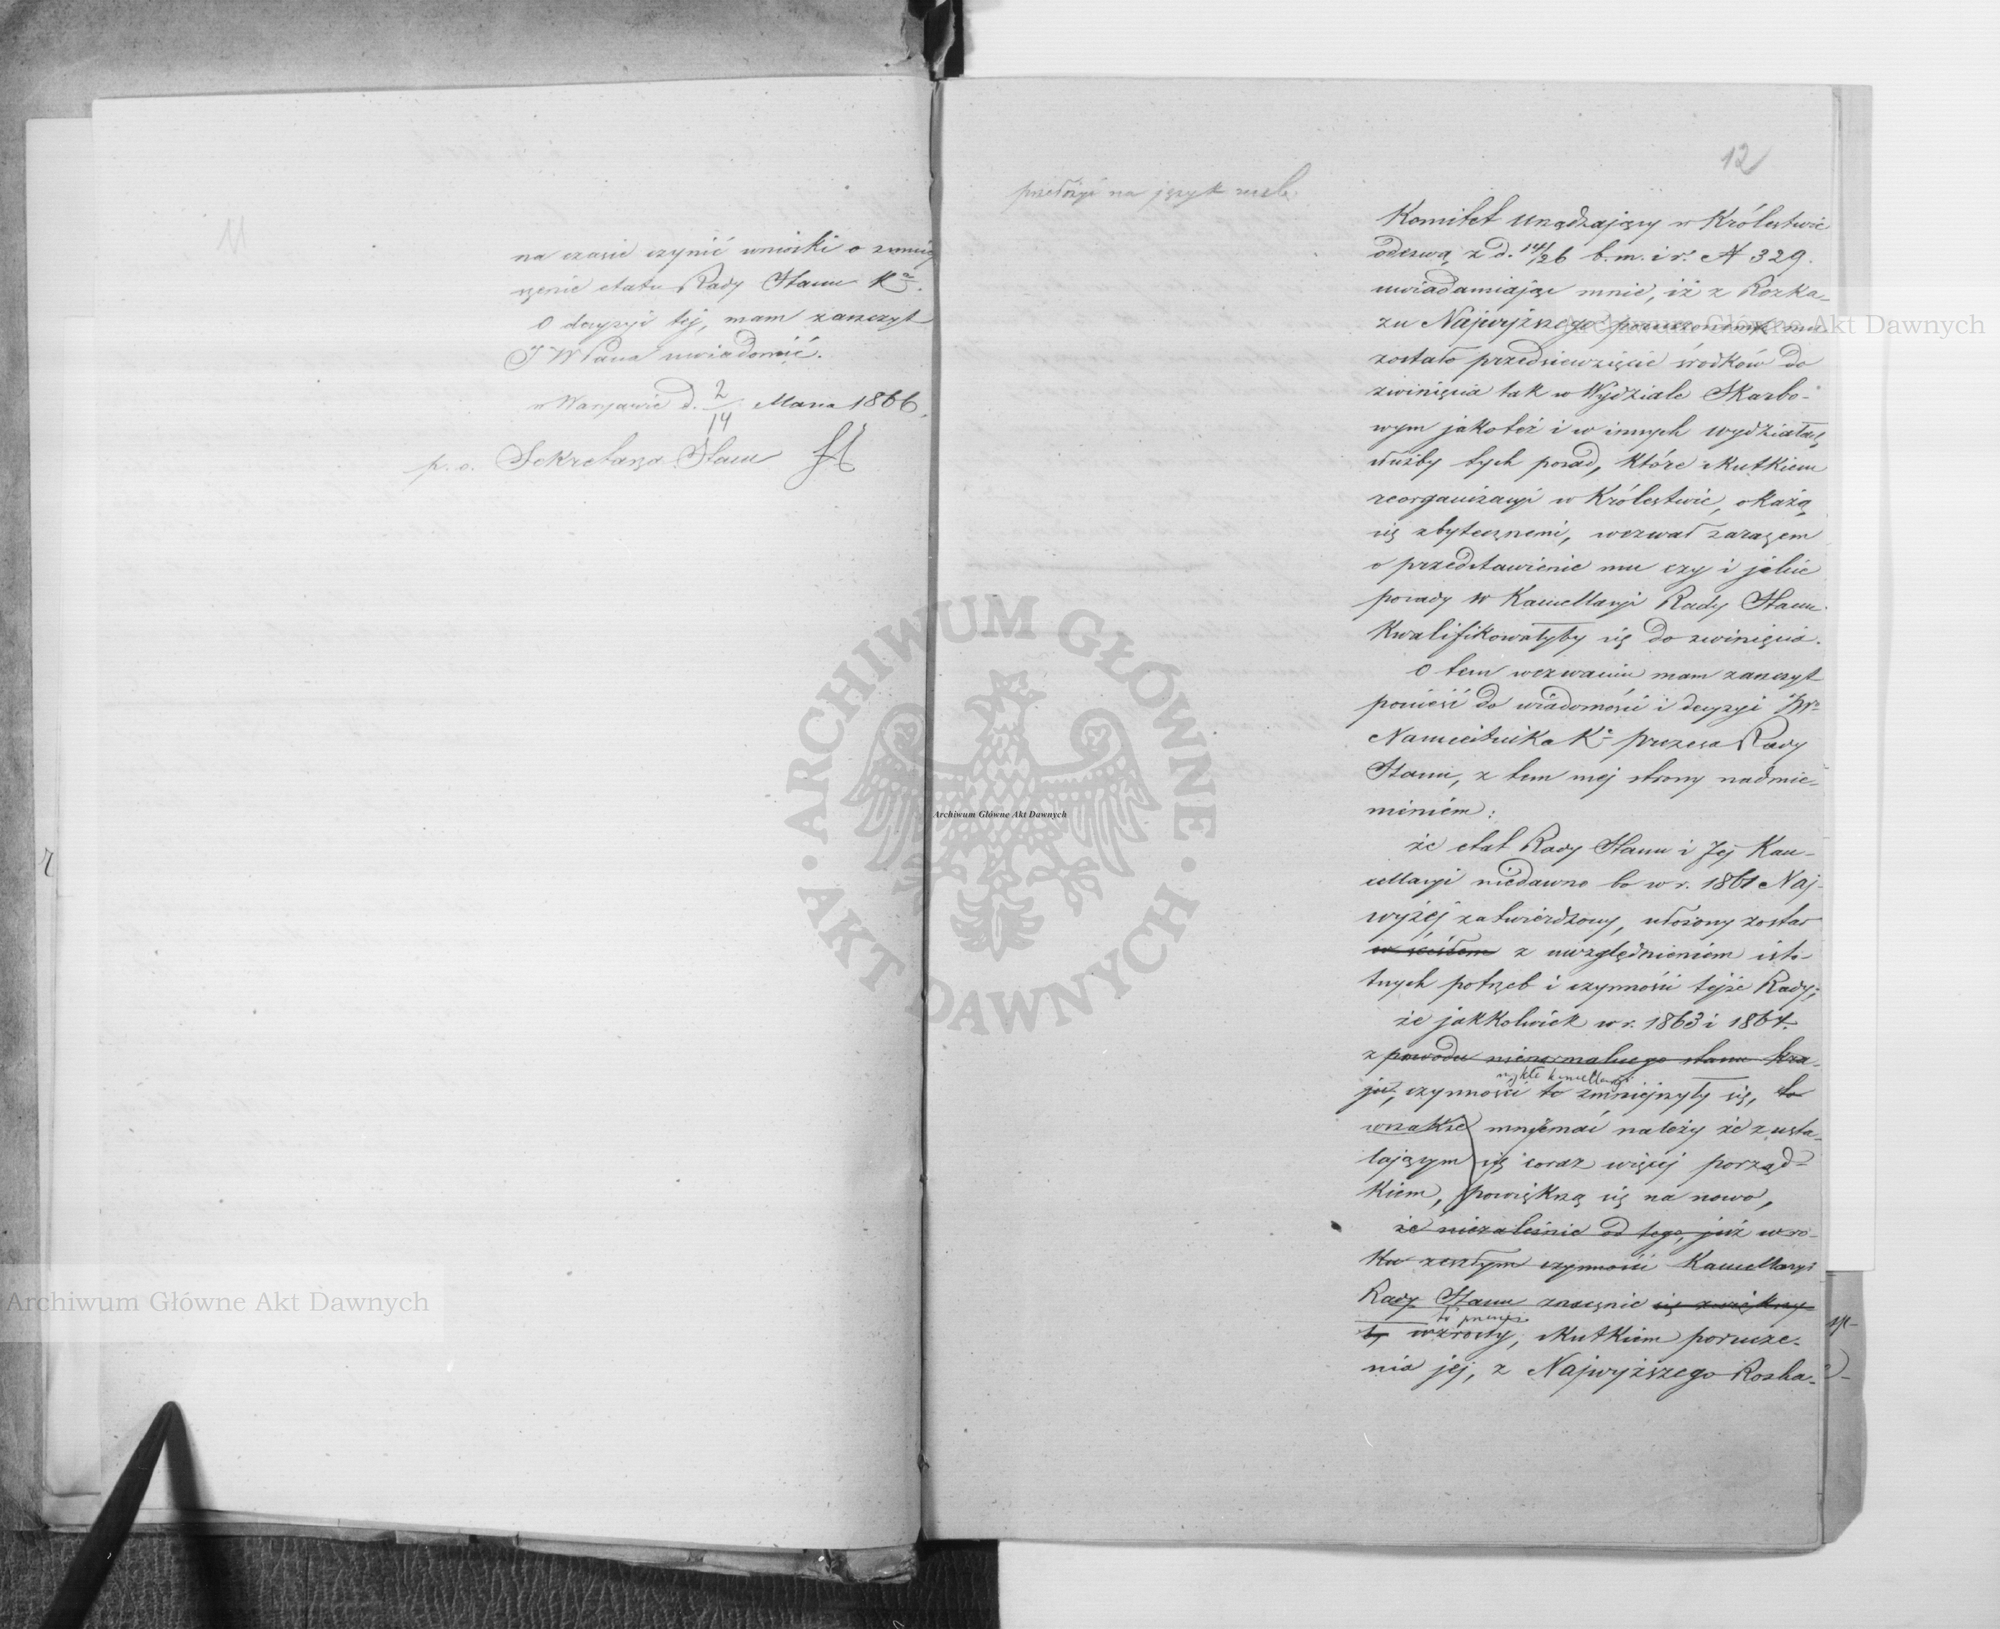 11
na czasie czynić wnioski o zmniej
szenie etatu Rady Stanu Kа.
O decyzyi tej, mam zaszczyt
JWPana uwiadomić.
w Warszawie d. 2/14 Marca 1866.
p. o. Sekretarza Stanu
12
przełożyć na język
Komitet Urządzający w Królestwie
odezwą z d. 14/26 b. m. i r. N 329.
uwiadamiając mnie, iż z Rozka-
zu Najwyższego poruczonem mu
zostało przedsięwzięcie środków do
zwinięcia tak w Wydziale Skarbo-
wym jakoteż i w innych wydziałach
służby tych posad, które skutkiem
reorganizacyi w Królestwie, okażą
się zbytecznemi, wezwał zarazem
o przedstawienie mu czy i jakie
posady w Kancellaryi Rady Stanu
kwalifikowałyby się do zwinięcia.
O tem wezwaniu mam zaszczyt
ponieść do wiadomości i decyzyi JW
Namiestnika Kа prezesa Rady
Stanu, z tem mej strony nadmie-
nieniem:
że etat Rady Stanu i Jej Kan-
cellaryi niedawno bo w r. 1861 Naj-
wyżej zatwierdzony, ułożony został
w ścisłem z uwzględnieniem isto-
tnych potrzeb i czynności tejże Rady;
że jakkolwiek w r. 1863 i 1864.
z powodu nienormalnego stanu kra-
zwykłe kancellaryi
ju, czynności te zmniejszyły się, to
wszakże mniemać należy że z usta-
lającym się coraz więcej porząd-
kiem, powiększą się na nowo,
że niezależnie od tego, już w ro-
ku zeszłym czynności Kancellaryi
Rady Stanu znacznie się zwiększy-
ły wzrosły, skutkiem porucze-
nia jej, z Najwyższego Rozka-
Archiwum Główne Akt Dawnych
Archiwum Główne Akt Dawnych
Archiwum Główne Akt Dawnych
ARCHIWUM GŁÓWNE · AKT DAWNYCH ·